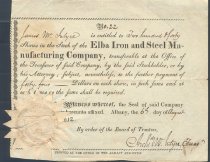 No. 22
James McIntyre is entitled to Two hundred & forty
Shares in the Stock of the Elba Iron and Steel Ma-
nufacturing Company, transferable at the Office of
the Treasurer of said Company, by the said Stockholder, or by
his Attorney; subject, nevertheless, to the further payment of
forty four Dollars on each share, in such sums and at
as the said shall be required.
Witness whereof, the seal of said Company
remains affixed. Albany, the 6th day of August
1812
By order of the Board of Trustees,